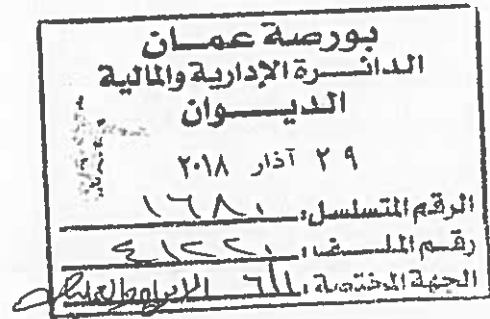 بورصة عمان
الدائرة الإدارية والمالية
الديوان
٢٩ آذار ٢٠١٨
الرقم المتسلسل: ١٦٨٠
رقم الملف: ٤١٢٢٠
الجهة المختصة: